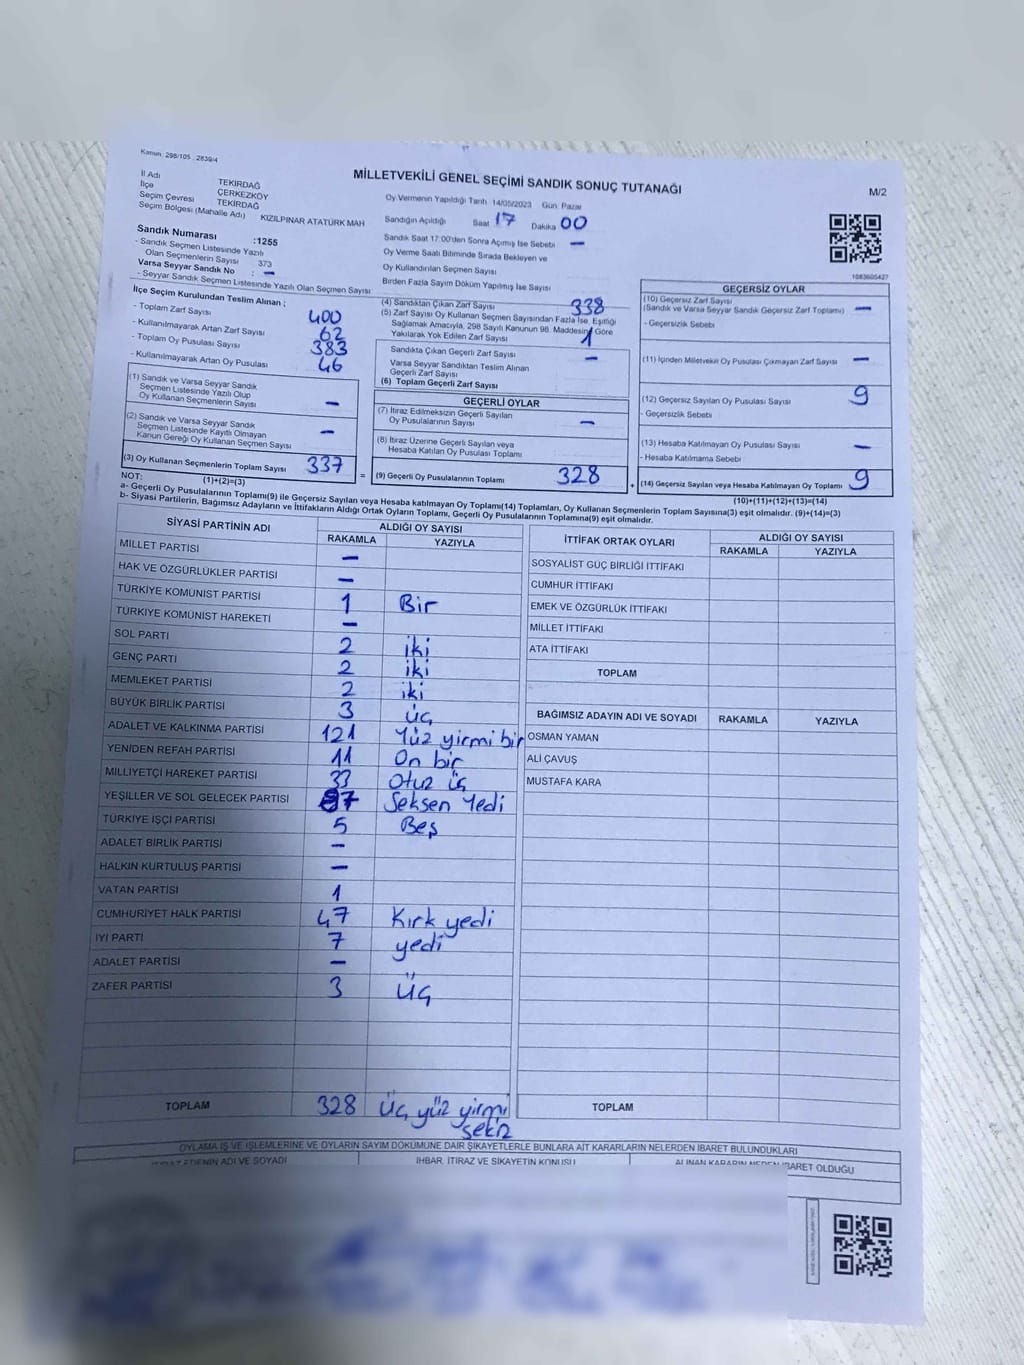 Kanun: 298/105 , 2839/4
MİLLETVEKİLİ GENEL SEÇİMİ SANDIK SONUÇ TUTANAĞI
M/2
İl Adı TEKİRDAĞ
İlçe ÇERKEZKÖY
Seçim Çevresi TEKİRDAĞ
Seçim Bölgesi (Mahalle Adı) KIZILPINAR ATATÜRK MAH
Oy Vermenin Yapıldığı Tarih 14/05/2023 Gün: Pazar
Sandığın Açıldığı Saat 17 Dakika 00
Sandık Saat 17:00'den Sonra Açılmış İse Sebebi —
Oy Verme Saati Bitiminde Sırada Bekleyen ve
Oy Kullandırılan Seçmen Sayısı
Birden Fazla Sayım Döküm Yapılmış İse Sayısı
1083600427
Sandık Numarası :1255
- Sandık Seçmen Listesinde Yazılı
Olan Seçmenlerin Sayısı 373
Varsa Seyyar Sandık No : —
- Seyyar Sandık Seçmen Listesinde Yazılı Olan Seçmen Sayısı:
İlçe Seçim Kurulundan Teslim Alınan ;
- Toplam Zarf Sayısı 400
- Kullanılmayarak Artan Zarf Sayısı 62
- Toplam Oy Pusulası Sayısı 383
- Kullanılmayarak Artan Oy Pusulası 46
(1) Sandık ve Varsa Seyyar Sandık
Seçmen Listesinde Yazılı Olup
Oy Kullanan Seçmenlerin Sayısı —
(2) Sandık ve Varsa Seyyar Sandık
Seçmen Listesinde Kayıtlı Olmayan
Kanun Gereği Oy Kullanan Seçmen Sayısı —
(3) Oy Kullanan Seçmenlerin Toplam Sayısı 337
(1)+(2)=(3)
(4) Sandıktan Çıkan Zarf Sayısı 338
(5) Zarf Sayısı Oy Kullanan Seçmen Sayısından Fazla İse, Eşitliği
Sağlamak Amacıyla, 298 Sayılı Kanunun 98. Maddesine Göre
Yakılarak Yok Edilen Zarf Sayısı 1
Sandıkta Çıkan Geçerli Zarf Sayısı —
Varsa Seyyar Sandıktan Teslim Alınan
Geçerli Zarf Sayısı
(6) Toplam Geçerli Zarf Sayısı
GEÇERLİ OYLAR
(7) İtiraz Edilmeksizin Geçerli Sayılan
Oy Pusulalarının Sayısı —
(8) İtiraz Üzerine Geçerli Sayılan veya
Hesaba Katılan Oy Pusulası Toplamı
= (9) Geçerli Oy Pusulalarının Toplamı 328
GEÇERSİZ OYLAR
(10) Geçersiz Zarf Sayısı
(Sandık ve Varsa Seyyar Sandık Geçersiz Zarf Toplamı) —
- Geçersizlik Sebebi
(11) İçinden Milletvekili Oy Pusulası Çıkmayan Zarf Sayısı —
(12) Geçersiz Sayılan Oy Pusulası Sayısı 9
- Geçersizlik Sebebi
(13) Hesaba Katılmayan Oy Pusulası Sayısı —
- Hesaba Katılmama Sebebi
+ (14) Geçersiz Sayılan veya Hesaba Katılmayan Oy Toplamı 9
(10)+(11)+(12)+(13)=(14)
NOT:
a- Geçerli Oy Pusulalarının Toplamı(9) ile Geçersiz Sayılan veya Hesaba katılmayan Oy Toplamı(14) Toplamları, Oy Kullanan Seçmenlerin Toplam Sayısına(3) eşit olmalıdır. (9)+(14)=(3)
b- Siyasi Partilerin, Bağımsız Adayların ve İttifakların Aldığı Ortak Oyların Toplamı, Geçerli Oy Pusulalarının Toplamına(9) eşit olmalıdır.
SİYASİ PARTİNİN ADI ALDIĞI OY SAYISI
RAKAMLA YAZIYLA
MİLLET PARTİSİ —
HAK VE ÖZGÜRLÜKLER PARTİSİ —
TÜRKİYE KOMÜNİST PARTİSİ 1 Bir
TÜRKİYE KOMÜNİST HAREKETİ —
SOL PARTİ 2 iki
GENÇ PARTİ 2 iki
MEMLEKET PARTİSİ 2 iki
BÜYÜK BİRLİK PARTİSİ 3 üç
ADALET VE KALKINMA PARTİSİ 121 Yüz yirmi bir
YENİDEN REFAH PARTİSİ 11 On bir
MİLLİYETÇİ HAREKET PARTİSİ 33 Otuz üç
YEŞİLLER VE SOL GELECEK PARTİSİ 87 Seksen Yedi
TÜRKİYE İŞÇİ PARTİSİ 5 Beş
ADALET BİRLİK PARTİSİ —
HALKIN KURTULUŞ PARTİSİ —
VATAN PARTİSİ 1
CUMHURİYET HALK PARTİSİ 47 Kırk yedi
İYİ PARTİ 7 yedi
ADALET PARTİSİ —
ZAFER PARTİSİ 3 üç
TOPLAM 328 üç yüz yirmi
sekiz
İTTİFAK ORTAK OYLARI ALDIĞI OY SAYISI
RAKAMLA YAZIYLA
SOSYALİST GÜÇ BİRLİĞİ İTTİFAKI
CUMHUR İTTİFAKI
EMEK VE ÖZGÜRLÜK İTTİFAKI
MİLLET İTTİFAKI
ATA İTTİFAKI
TOPLAM
BAĞIMSIZ ADAYIN ADI VE SOYADI RAKAMLA YAZIYLA
OSMAN YAMAN
ALİ ÇAVUŞ
MUSTAFA KARA
TOPLAM
OYLAMA İŞ VE İŞLEMLERİNE VE OYLARIN SAYIM DÖKÜMÜNE DAİR ŞİKAYETLERLE BUNLARA AİT KARARLARIN NELERDEN İBARET BULUNDUKLARI
İTİRAZ EDENİN ADI VE SOYADI İHBAR, İTİRAZ VE ŞİKAYETİN KONUSU ALINAN KARARIN NEDEN İBARET OLDUĞU